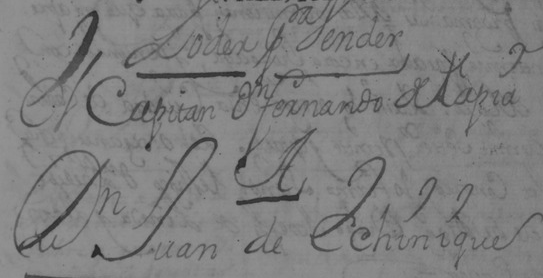 Poder pra Vender
El Capitan Dn fernando de tapia
A
Dn Juan de Echinique